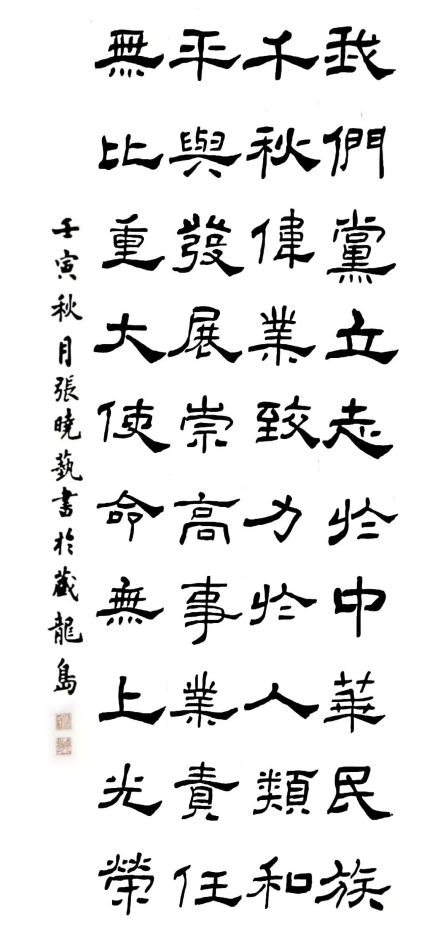 我們黨立志於中華民族
千秋偉業致力於人類和
平與發展崇高事業責任
無比重大使命無上光榮
壬寅秋月張曉藝書於藏龍島